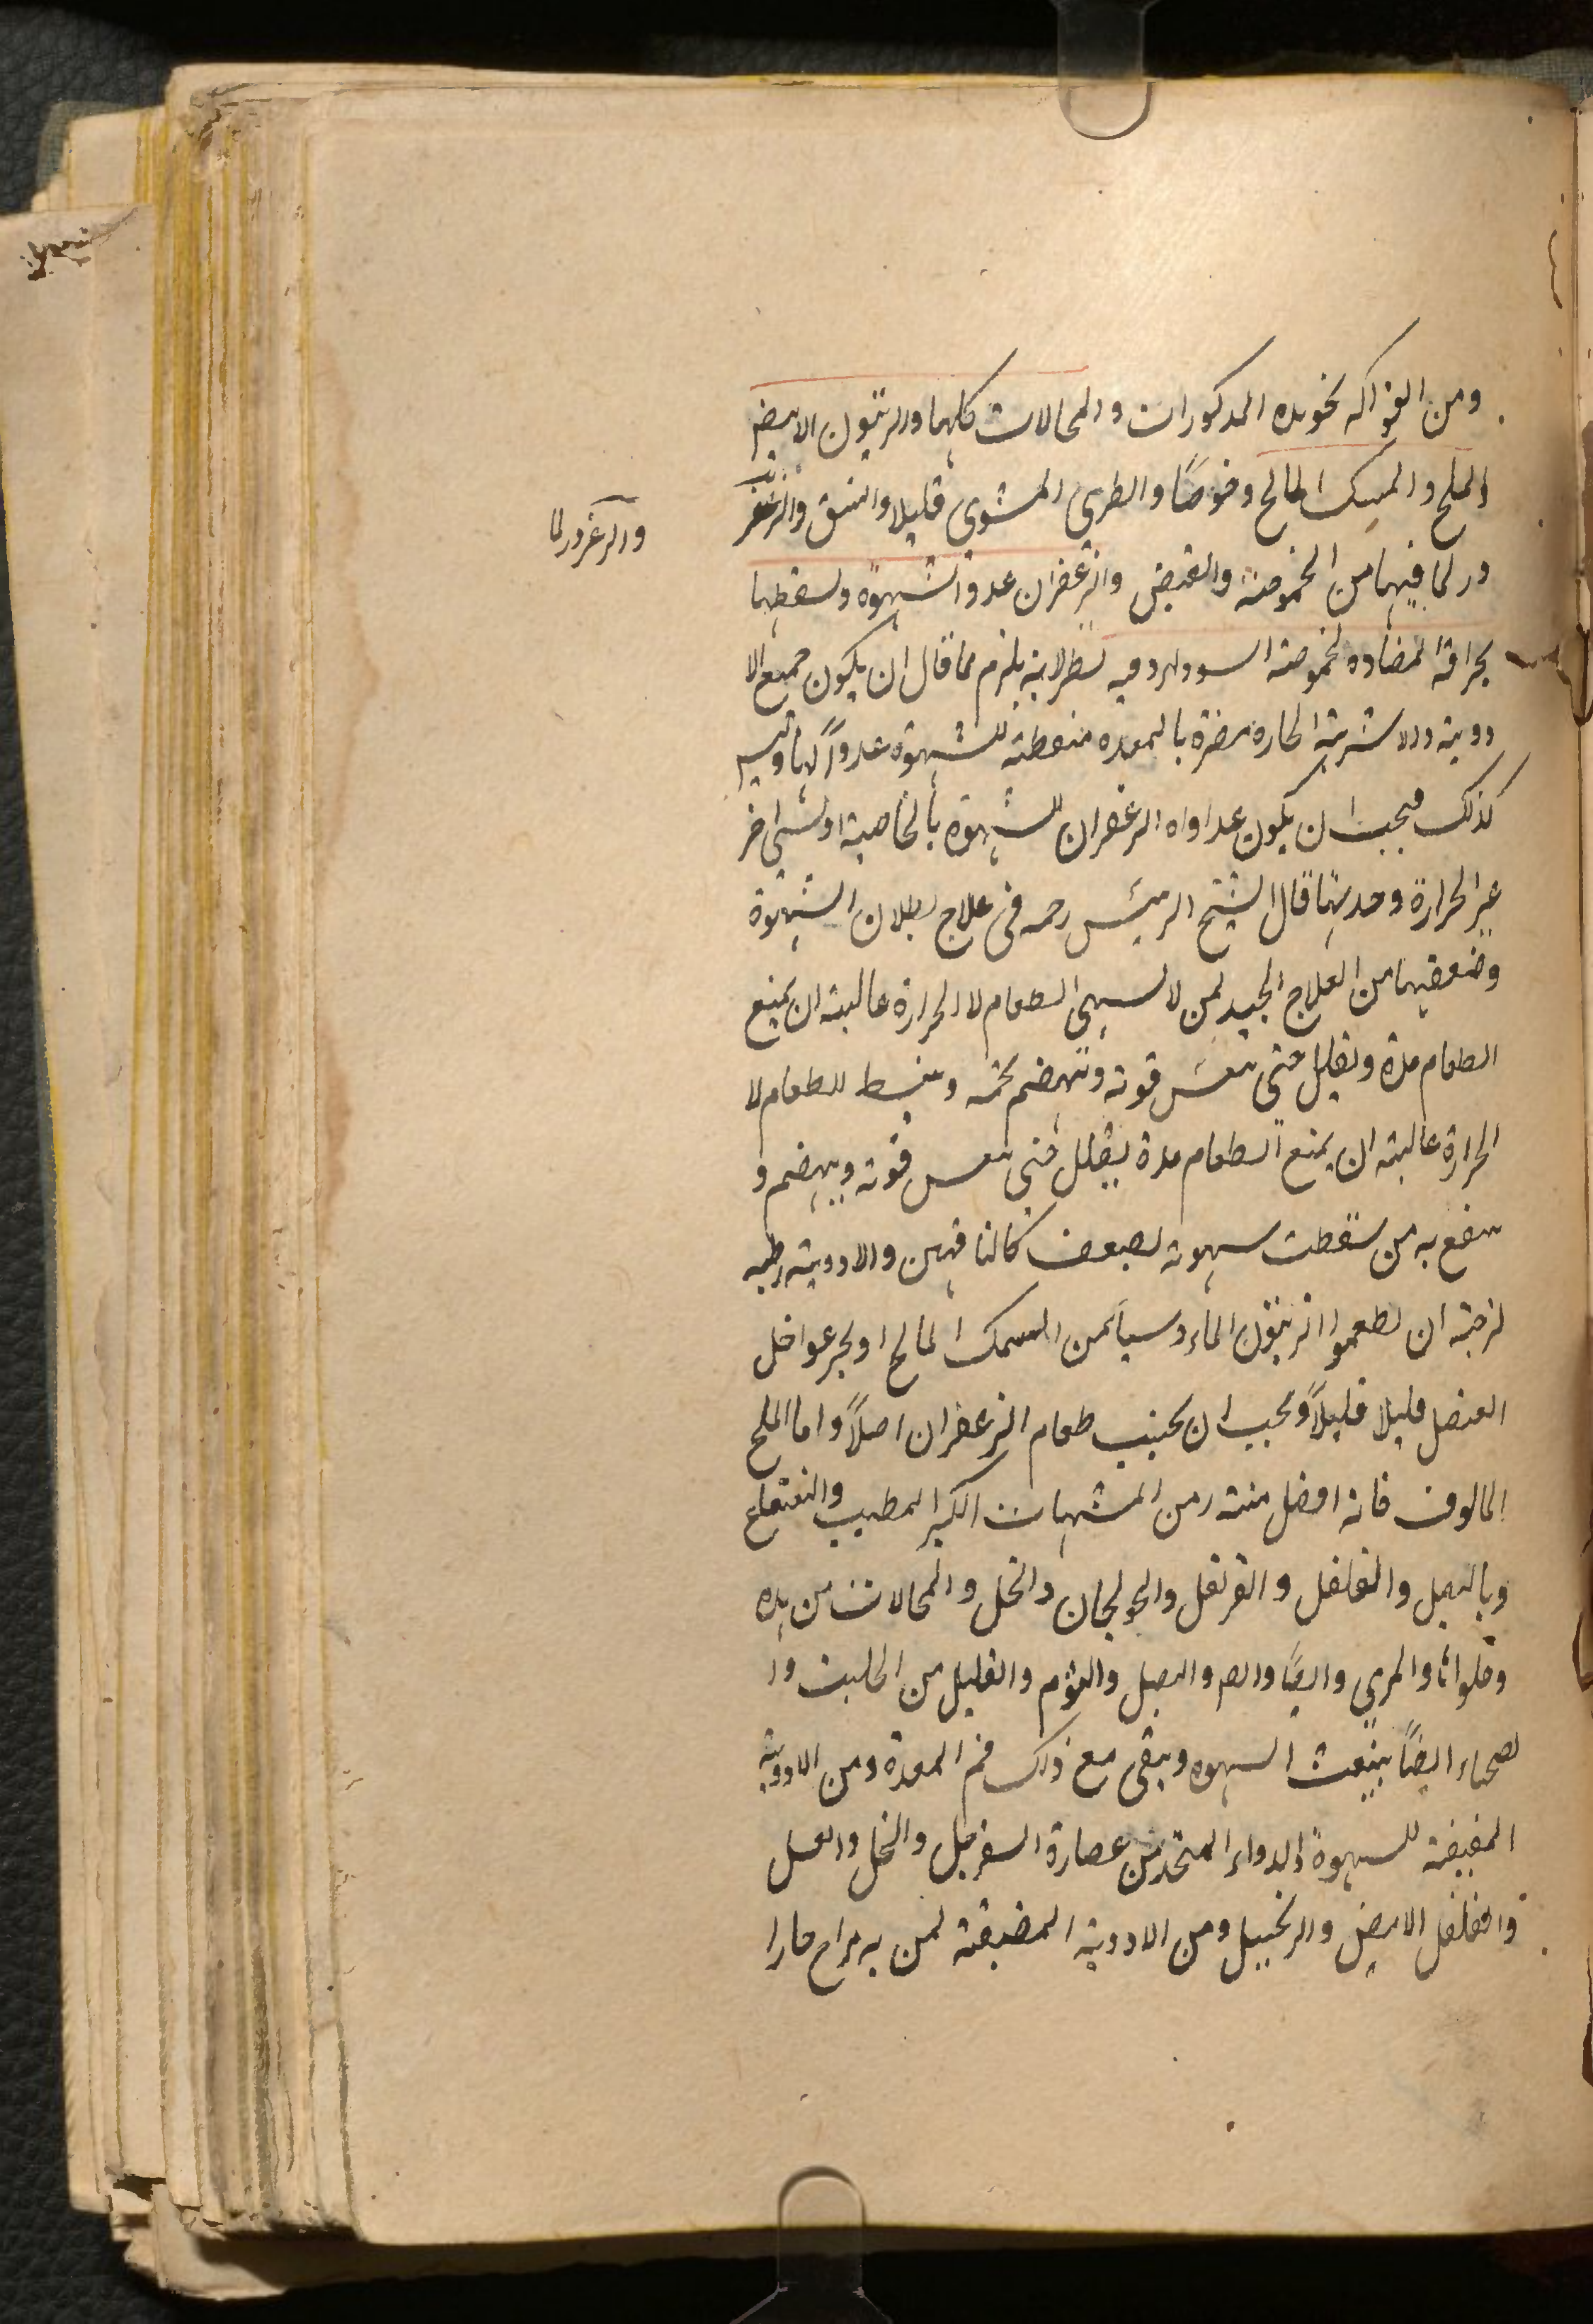 ومن الفواكه نحو هذه المذكورات والمخللات كلها والزيتون الابيض
المملح والسمك المالح وخوصًا والطري المشوي قليلا والفستق والزعفر
ور لما فيها من الحموضة والقبض والزعفران عدو الشهوة ولسقطها
بحرافة المضادة لحموضة السوداء وفيه نظر لانه يلزم مما قال ان يكون جميع الا
دوية والاشربة الحاره مضرة بالمعده مسقطة للشهوة عدوًا لها وليس
كذلك فيجب ان يكون عداواه الزعفران للشهوة بالخاصية او لشئ اخر
غير الحرارة وحديتها قال الشيخ الرئيس رحمه فى علاج بطلان الشهوة
وضعفها من العلاج الجيد لمن لا يشتهي الطعام لا لحرارة غالبة ان يمنع
الطعام مدة ويقلل حتى ينعش قوته وينهضم تخمه وينشط للطعام لا
لحرارة غالبة ان يمنع الطعام مدة يقلل حتى ينعش قوته ويهضم و
ينفع به من سقطت شهوته لضعف كالناقهين والادوية رطبه
لزجة ان يطعموا الزيتون الماء وشيأ من السمك المالح او يجرعوا خل
العنصل قليلا قليلاً ويجب ان يجنب طعام الزعفران اصلاً واما الملح
المالوف فانه افضل منته ومن المشهيات الكبر المطيب والنعناع
وبالبصل والفلفل والقرنفل والخولنجان والخل والمخللات من هذه
وقلواتها والمري وايضًا والبصل والثوم والقليل من الحلتيت وا
لصحناء ايضًا ينبعث الشهوه وينقى مع ذلك فم المعدة ومن الادوية
المفيقة للشهوة الدواء المتخذ من عصارة السفرجل والخل والعسل
والفلفل الابيض والزنجبيل ومن الادوية المفيقة لمن به مزاج حارا
والزعرور لما